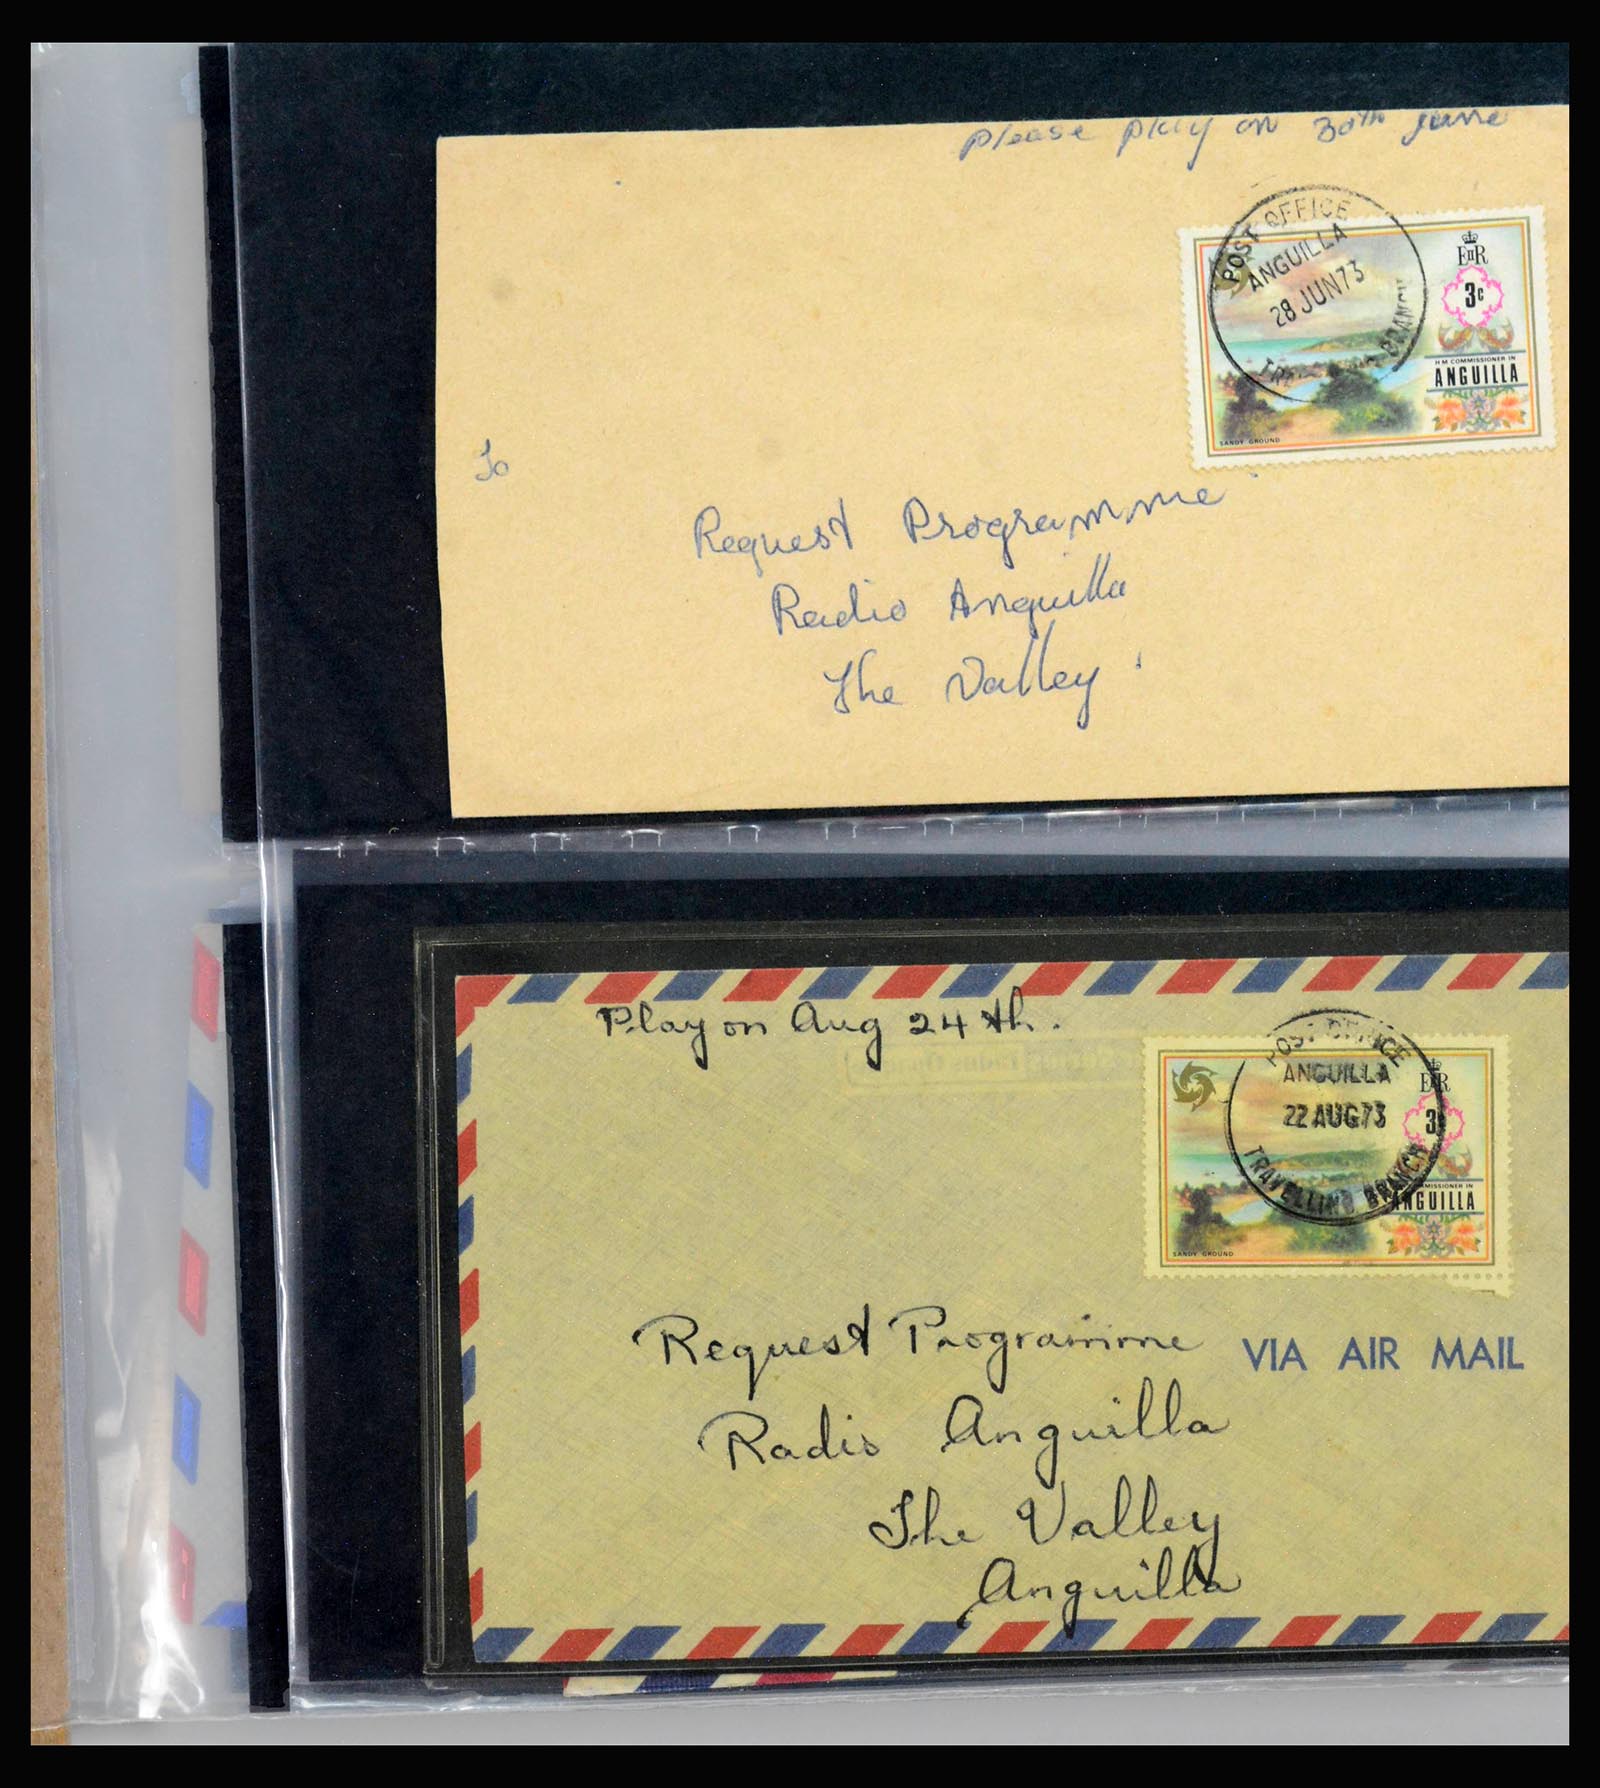 Please play on 30th June
POST OFFICE
ANGUILLA
28 JUN 73
BRANCH
EIIR
3c
H M COMMISSIONER IN
ANGUILLA
SANDY GROUND
To
Request Programme
Radio Anguilla
The Valley
Play on Aug 24th.
POST OFFICE
ANGUILLA
22 AUG 73
TRAVELLING BRANCH
EIIR
3
COMMISSIONER IN
ANGUILLA
SANDY GROUND
Request Programme
VIA AIR MAIL
Radio Anguilla
The Valley
Anguilla